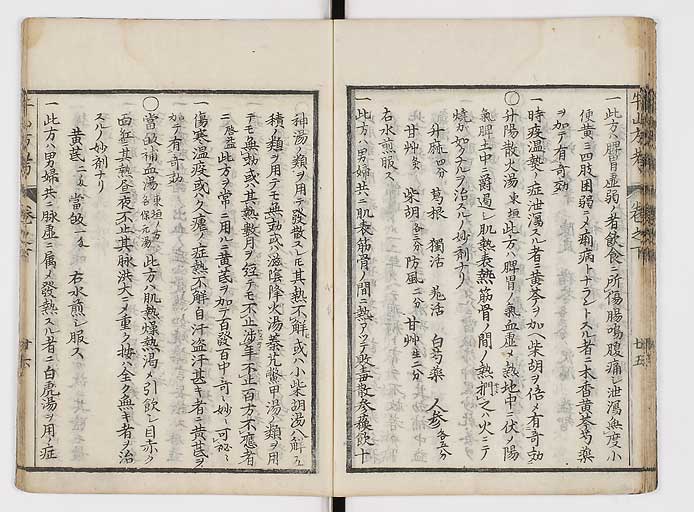 一此方ハ脾胃虚弱ノ者飲食ニ所傷腸鳴腹痛シ泄瀉無度小
便黄ニ四肢困弱ラメ痢病トナラントスル者ニ木香黄芩芍藥
ヲ加テ有奇効
一時疫温熱ノ症泄瀉スル者ニ黄芩ヲ加ヘ柴胡ヲ倍メ有奇効
〇升陽散火湯 東垣 此方ハ脾胃ノ氣血虚メ熱地中ニ伏ノ陽
氣脾土中ニ欝遏シ肌熱表熱筋骨ノ間ノ熱捫之ハ火ニテ
燒カ如クナルヲ治スルノ妙剤ナリ
升麻四分 葛根 獨活 羌活 白芍藥 人参各五分
甘艸灸 柴胡各三分 防風二分 甘艸生二分
右水煎服ス
一此方ハ男婦共ニ肌表筋骨ノ間ニ熱アツテ敗毒散参蘓飲十
神湯ノ類ヲ用テ發散スレモ其熱不解或ハ小柴胡湯人
積ノ類ヲ用テモ無効或ハ滋陰降火湯秦艽鱉甲湯ノ類ヲ用
テモ無効或ハ其熱數月ヲ經テモ不止渉年不止百方不應者
ニ 此方ヲ常ニ用ルニ黄芪ヲ加テ百發百中奇々妙々可秘々
一傷寒温疫或ハ久瘧ノ症熱不解自汗盗汗甚キ者ニ黄芪ヲ
加テ有奇効
〇當皈補血湯 東垣ノ方名保元湯 此方ハ肌熱燥熱渇メ引飲シ目赤ク
面紅其熱昼夜不止其脉洪大ニメ重ク按ハ全ク無キ者ヲ治
スルノ妙剤ナリ
黄芪二匁 當皈一匁 右水煎シ服ス
一此方ハ男婦共ニ脉虚ニ属メ發熱スル者ニ白虎湯ヲ用ノ症